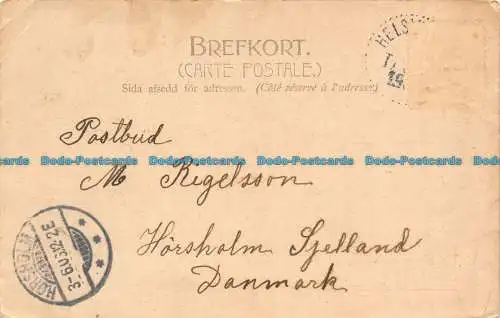 BREFKORT.
(CARTE POSTALE.)
Sida afsedd för adressen. (Côté réservé à l'adresse.)
HELS
Postbud
Dodo-Postcards Dodo-Postcards Dodo-Postcards Dodo-Postcards
M Rigelsson
Hörsholm Sjelland
Danmark
HÖRSHOLM
3-6.